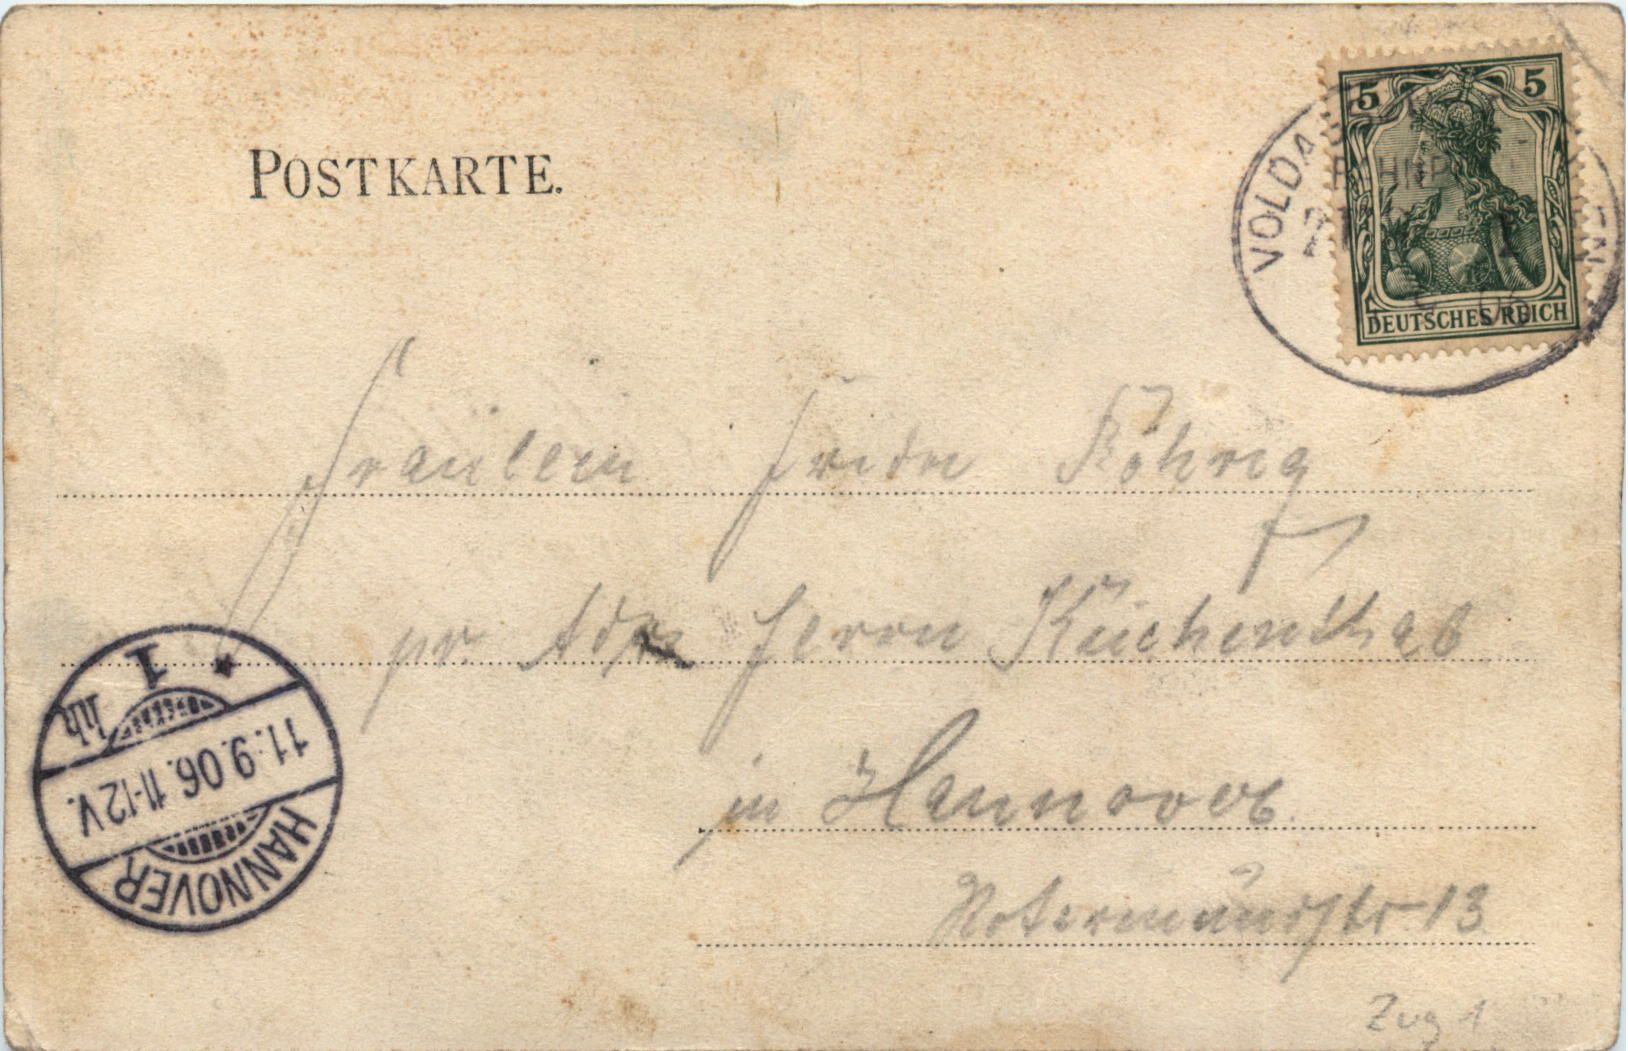 POSTKARTE.
5 5
DEUTSCHES REICH
VOLDA
Fräulein Frida Röhrig
pr. Adr. Herrn Küchenthal
in Hannover.
13
HANNOVER
11.9.06. 11-12V.
1
hh
Zug 1